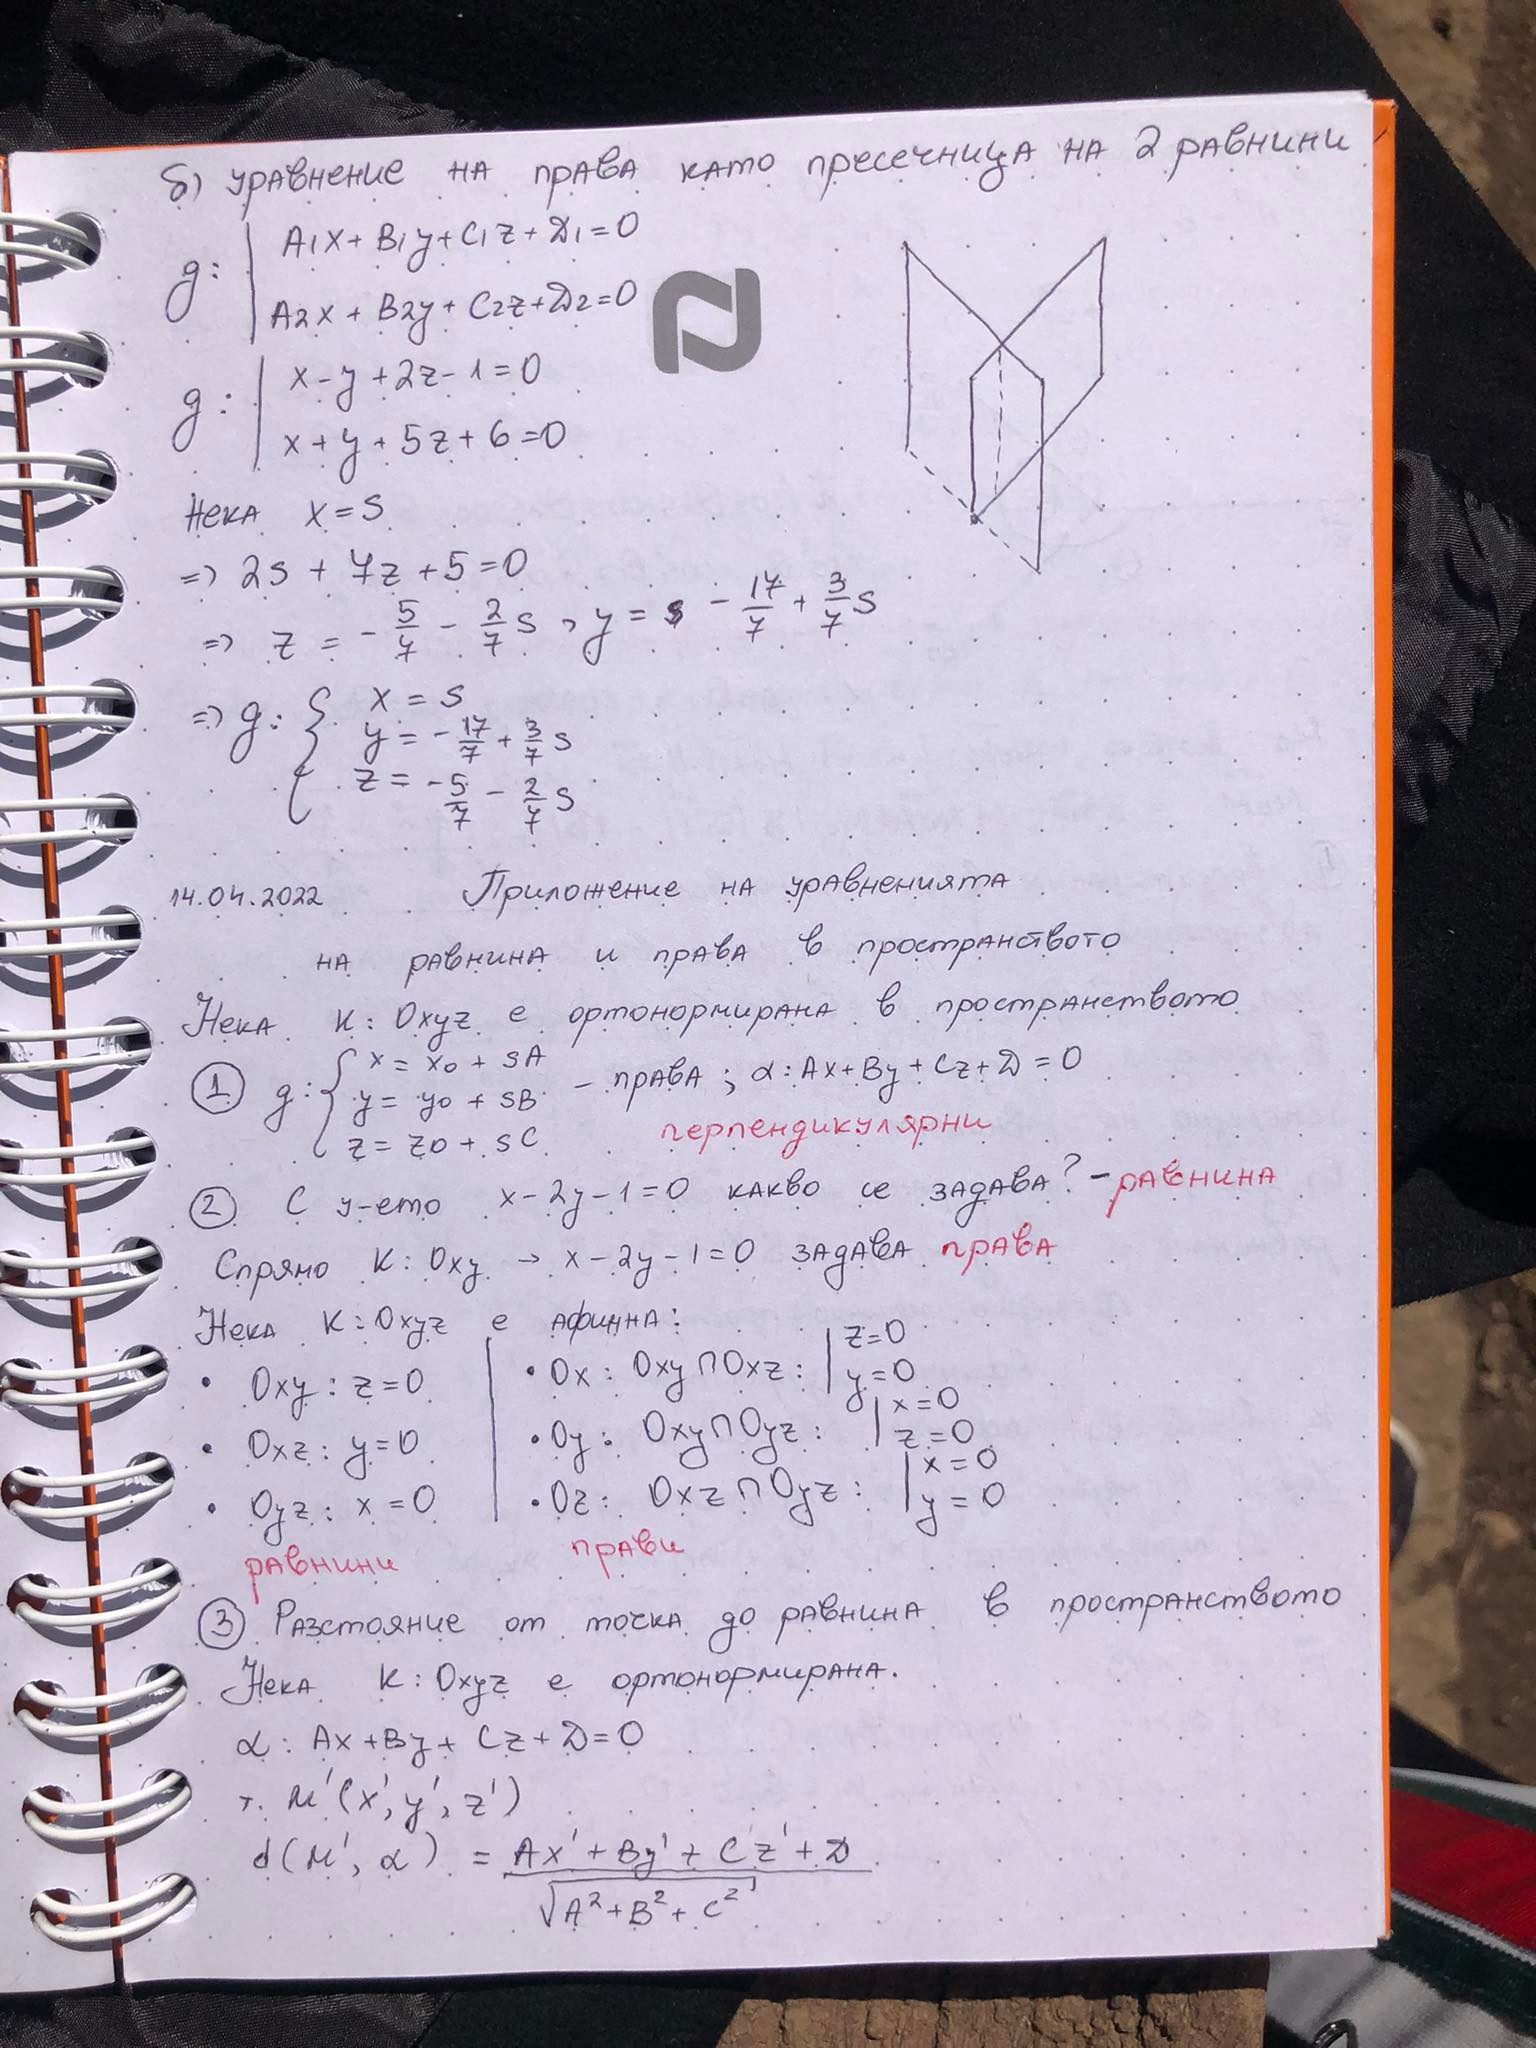 б) уравнение на права като пресечница на 2 равнини
g: | A₁x + B₁y + C₁z + D₁ = 0
| A₂x + B₂y + C₂z + D₂ = 0
g: | x - y + 2z - 1 = 0
| x + y + 5z + 6 = 0
Нека x = s
=> 2s + 7z + 5 = 0
=> z = - 5/7 - 2/7 s , y = - 17/7 + 3/7 s
=> g: { x = s
y = - 17/7 + 3/7 s
z = - 5/7 - 2/7 s
14.04.2022 Приложение на уравненията
на равнина и права в пространството
Нека K: Oxyz е ортонормирана в пространството
① g: { x = x₀ + sA
y = y₀ + sB - права ; α: Ax + By + Cz + D = 0
z = z₀ + sC перпендикулярни
② С у-ето x - 2y - 1 = 0 какво се задава? - равнина
Спрямо K: Oxy → x - 2y - 1 = 0 задава права
Нека K: Oxyz е афинна:
• Oxy : z = 0 | • Ox : Oxy ∩ Oxz : | z = 0
y = 0
• Oxz : y = 0 | • Oy : Oxy ∩ Oyz : | x = 0
z = 0
• Oyz : x = 0 | • Oz : Oxz ∩ Oyz : | x = 0
y = 0
равнини прави
③ Разстояние от точка до равнина в пространството
Нека K: Oxyz е ортонормирана.
α: Ax + By + Cz + D = 0
т. M'(x', y', z')
d(M', α) = Ax' + By' + Cz' + D
√A² + B² + C²